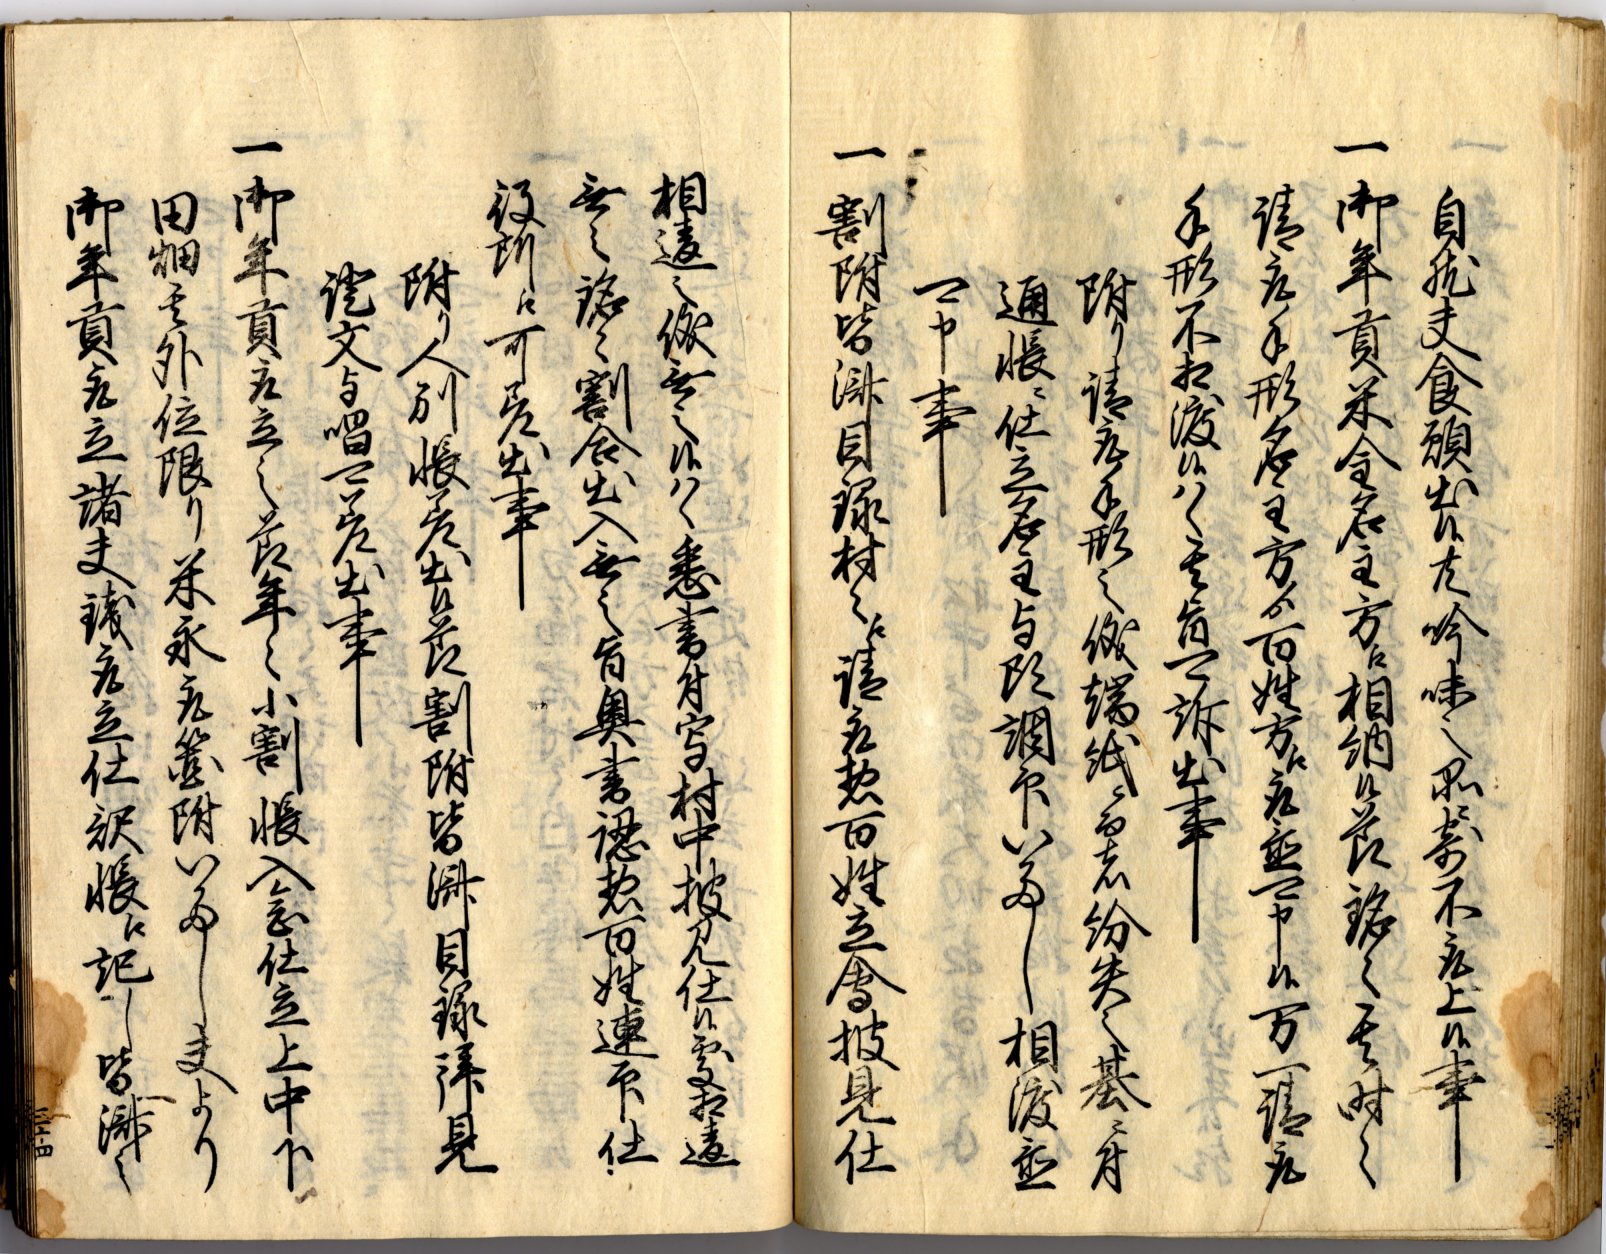 自然夫食願出候共吟味之品ニ寄不取上候事
一御年貢米金名主方江相納候節銘々其時々
請取手形名主方ゟ百姓方江取置可申候万一請取
手形不相渡候ハヽ其旨可訴出事
附り請取手形之儀端紙ニ而者紛失之基ニ付
通帳ニ仕立名主与歟調印いたし相渡置
可申事
一割附皆済目録村々江請取惣百姓立会披見仕
相違之儀無之候ハヽ悉書付写村中披見仕候處相違
無之銘々割合出入無之旨奥書認惣百姓連印仕
役所江可差出事
附り人別帳差出候節割附皆済目録拝見
証文与唱可差出事
一御年貢取立之節年々小割帳入念仕立上中下
田畑其外位限り米永取箇附いたし夫より
御年貢取立諸夫銭取立仕訳帳江記し皆済之